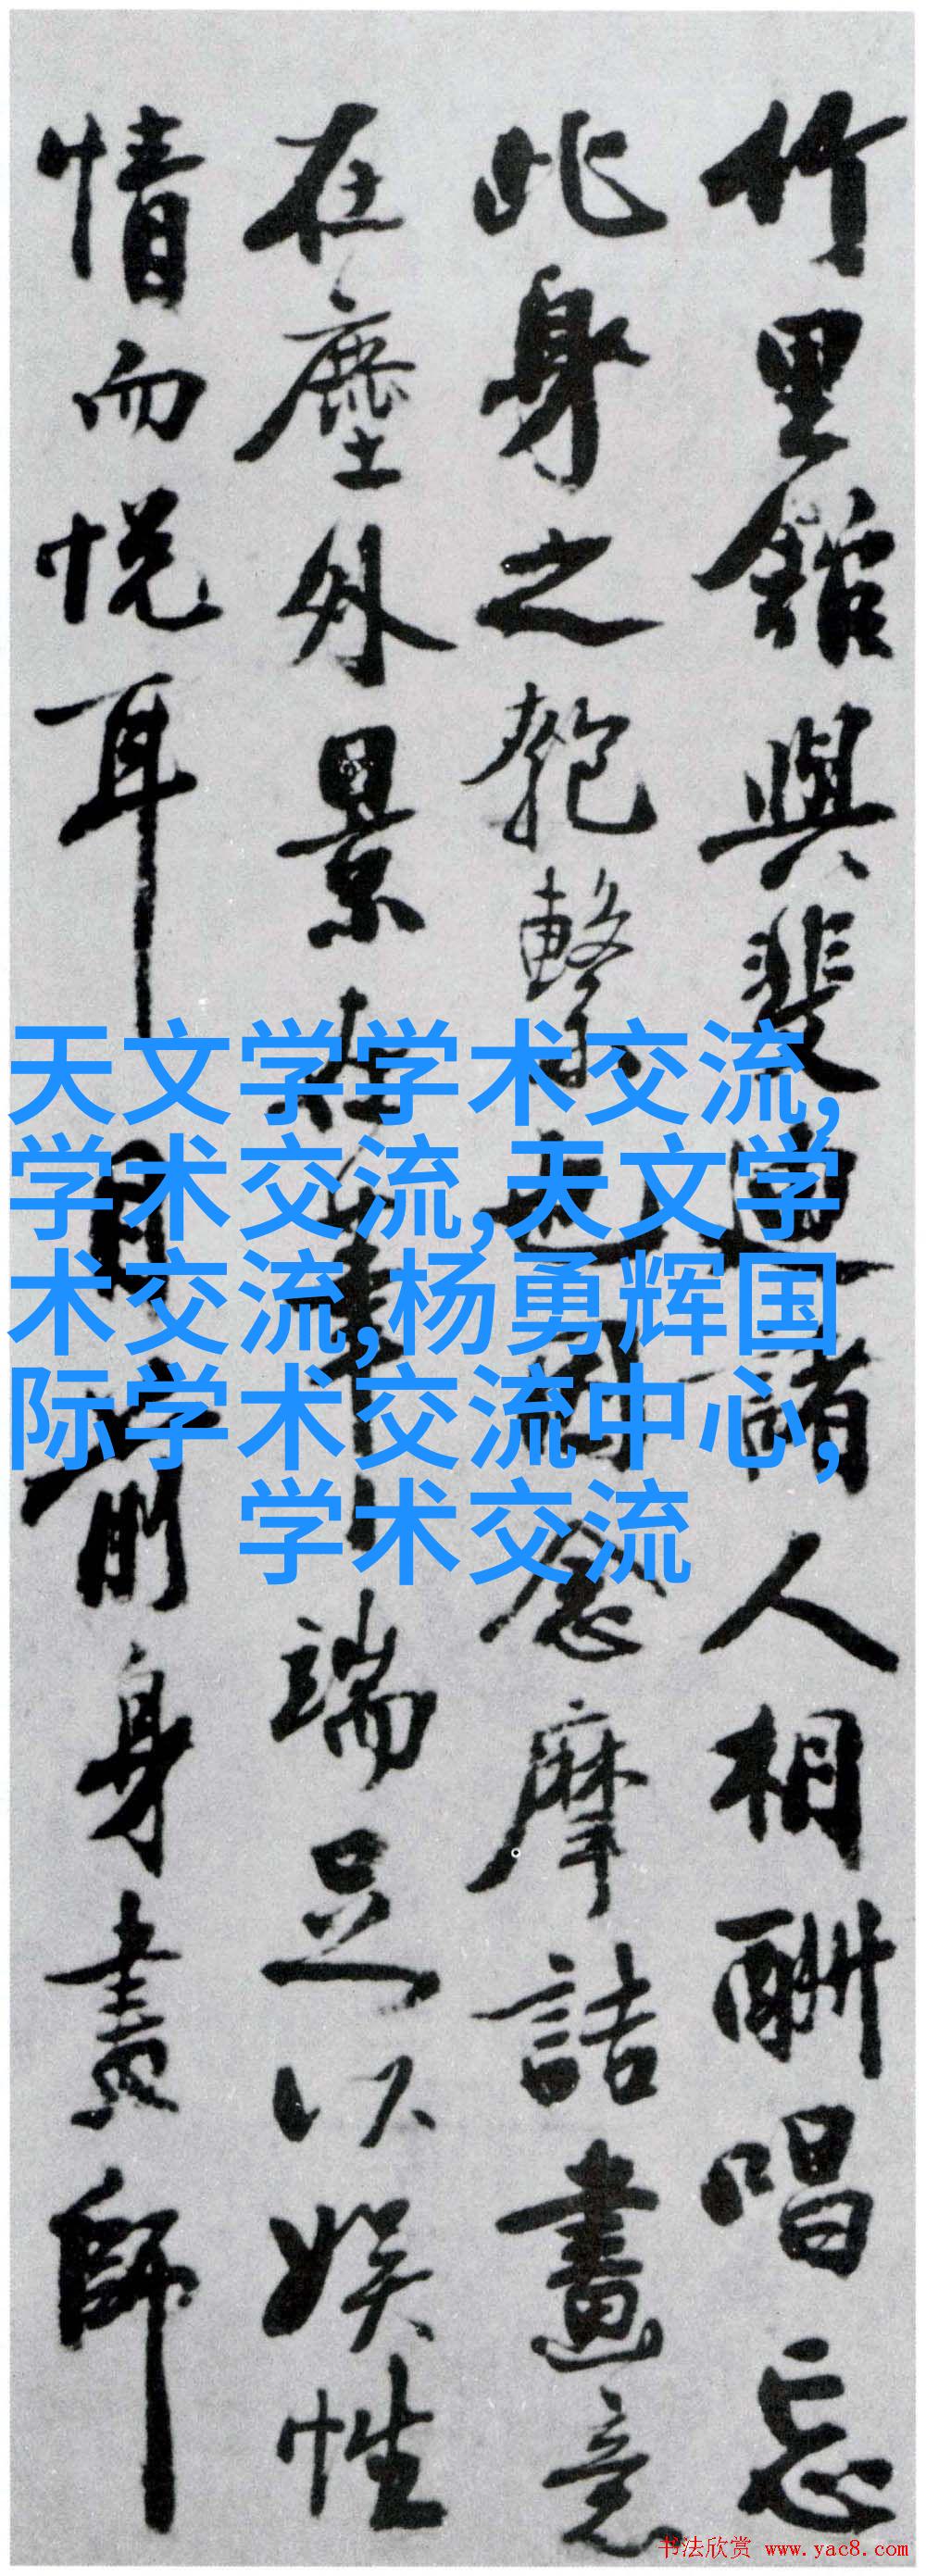 竹里館與裴迪諸人相酬唱忘
此身之匏繫也因念摩詰畫意
在塵外景在筆端足以娛性
情而悅耳目前身畫師
天文学学术交流,
学术交流,天文学
术交流,杨勇辉国
际学术交流中心,
学术交流
书法欣赏 www.yac8.com